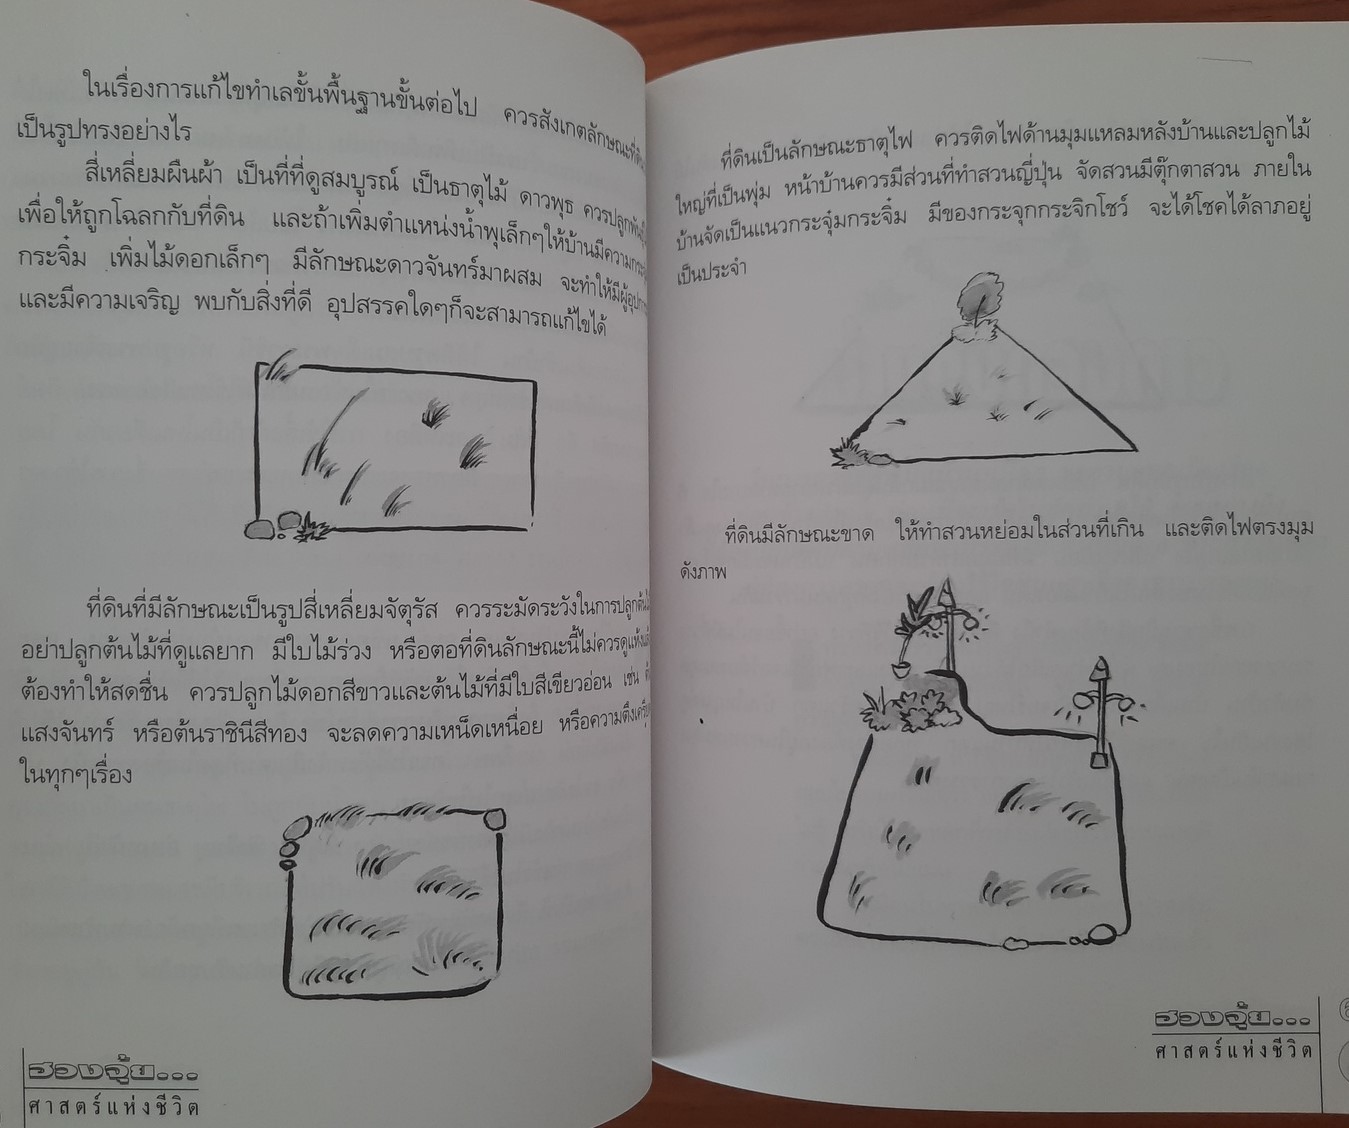 ในเรื่องการแก้ไขทำเลขั้นพื้นฐานขั้นต่อไป ควรสังเกตลักษณะที่ดิน
เป็นรูปทรงอย่างไร
สี่เหลี่ยมผืนผ้า เป็นที่ที่ดูสมบูรณ์ เป็นธาตุไม้ ดาวพุธ ควรปลูกพันธุ์
เพื่อให้ถูกโฉลกกับที่ดิน และถ้าเพิ่มตำแหน่งน้ำพุเล็กๆให้บ้านมีความ
กระจิ๋ม เพิ่มไม้ดอกเล็กๆ มีลักษณะดาวจันทร์มาผสม จะทำให้มี
และมีความเจริญ พบกับสิ่งที่ดี อุปสรรคใดๆก็จะสามารถแก้ไขได้
ที่ดินที่มีลักษณะเป็นรูปสี่เหลี่ยมจัตุรัส ควรระมัดระวังในการปลูก
อย่าปลูกต้นไม้ที่ดูแลยาก มีใบไม้ร่วง หรือตอที่ดินลักษณะนี้ไม่ควรดูแห้ง
ต้องทำให้สดชื่น ควรปลูกไม้ดอกสีขาวและต้นไม้ที่มีใบสีเขียวอ่อน เช่น
แสงจันทร์ หรือต้นราชินีสีทอง จะลดความเหน็ดเหนื่อย หรือความตึง
ในทุกๆเรื่อง
ฮวงจุ้ย...
ศาสตร์แห่งชีวิต
ที่ดินเป็นลักษณะธาตุไฟ ควรติดไฟด้านมุมแหลมหลังบ้านและปลูกไม้
ใหญ่ที่เป็นพุ่ม หน้าบ้านควรมีส่วนที่ทำสวนญี่ปุ่น จัดสวนมีตุ๊กตาสวน ภายใน
บ้านจัดเป็นแนวกระจุ๋มกระจิ๋ม มีของกระจุกกระจิกโชว์ จะได้โชคได้ลาภอยู่
เป็นประจำ
ที่ดินมีลักษณะขาด ให้ทำสวนหย่อมในส่วนที่เกิน และติดไฟตรงมุม
ดังภาพ
ฮวงจุ้ย...
ศาสตร์แห่งชีวิต